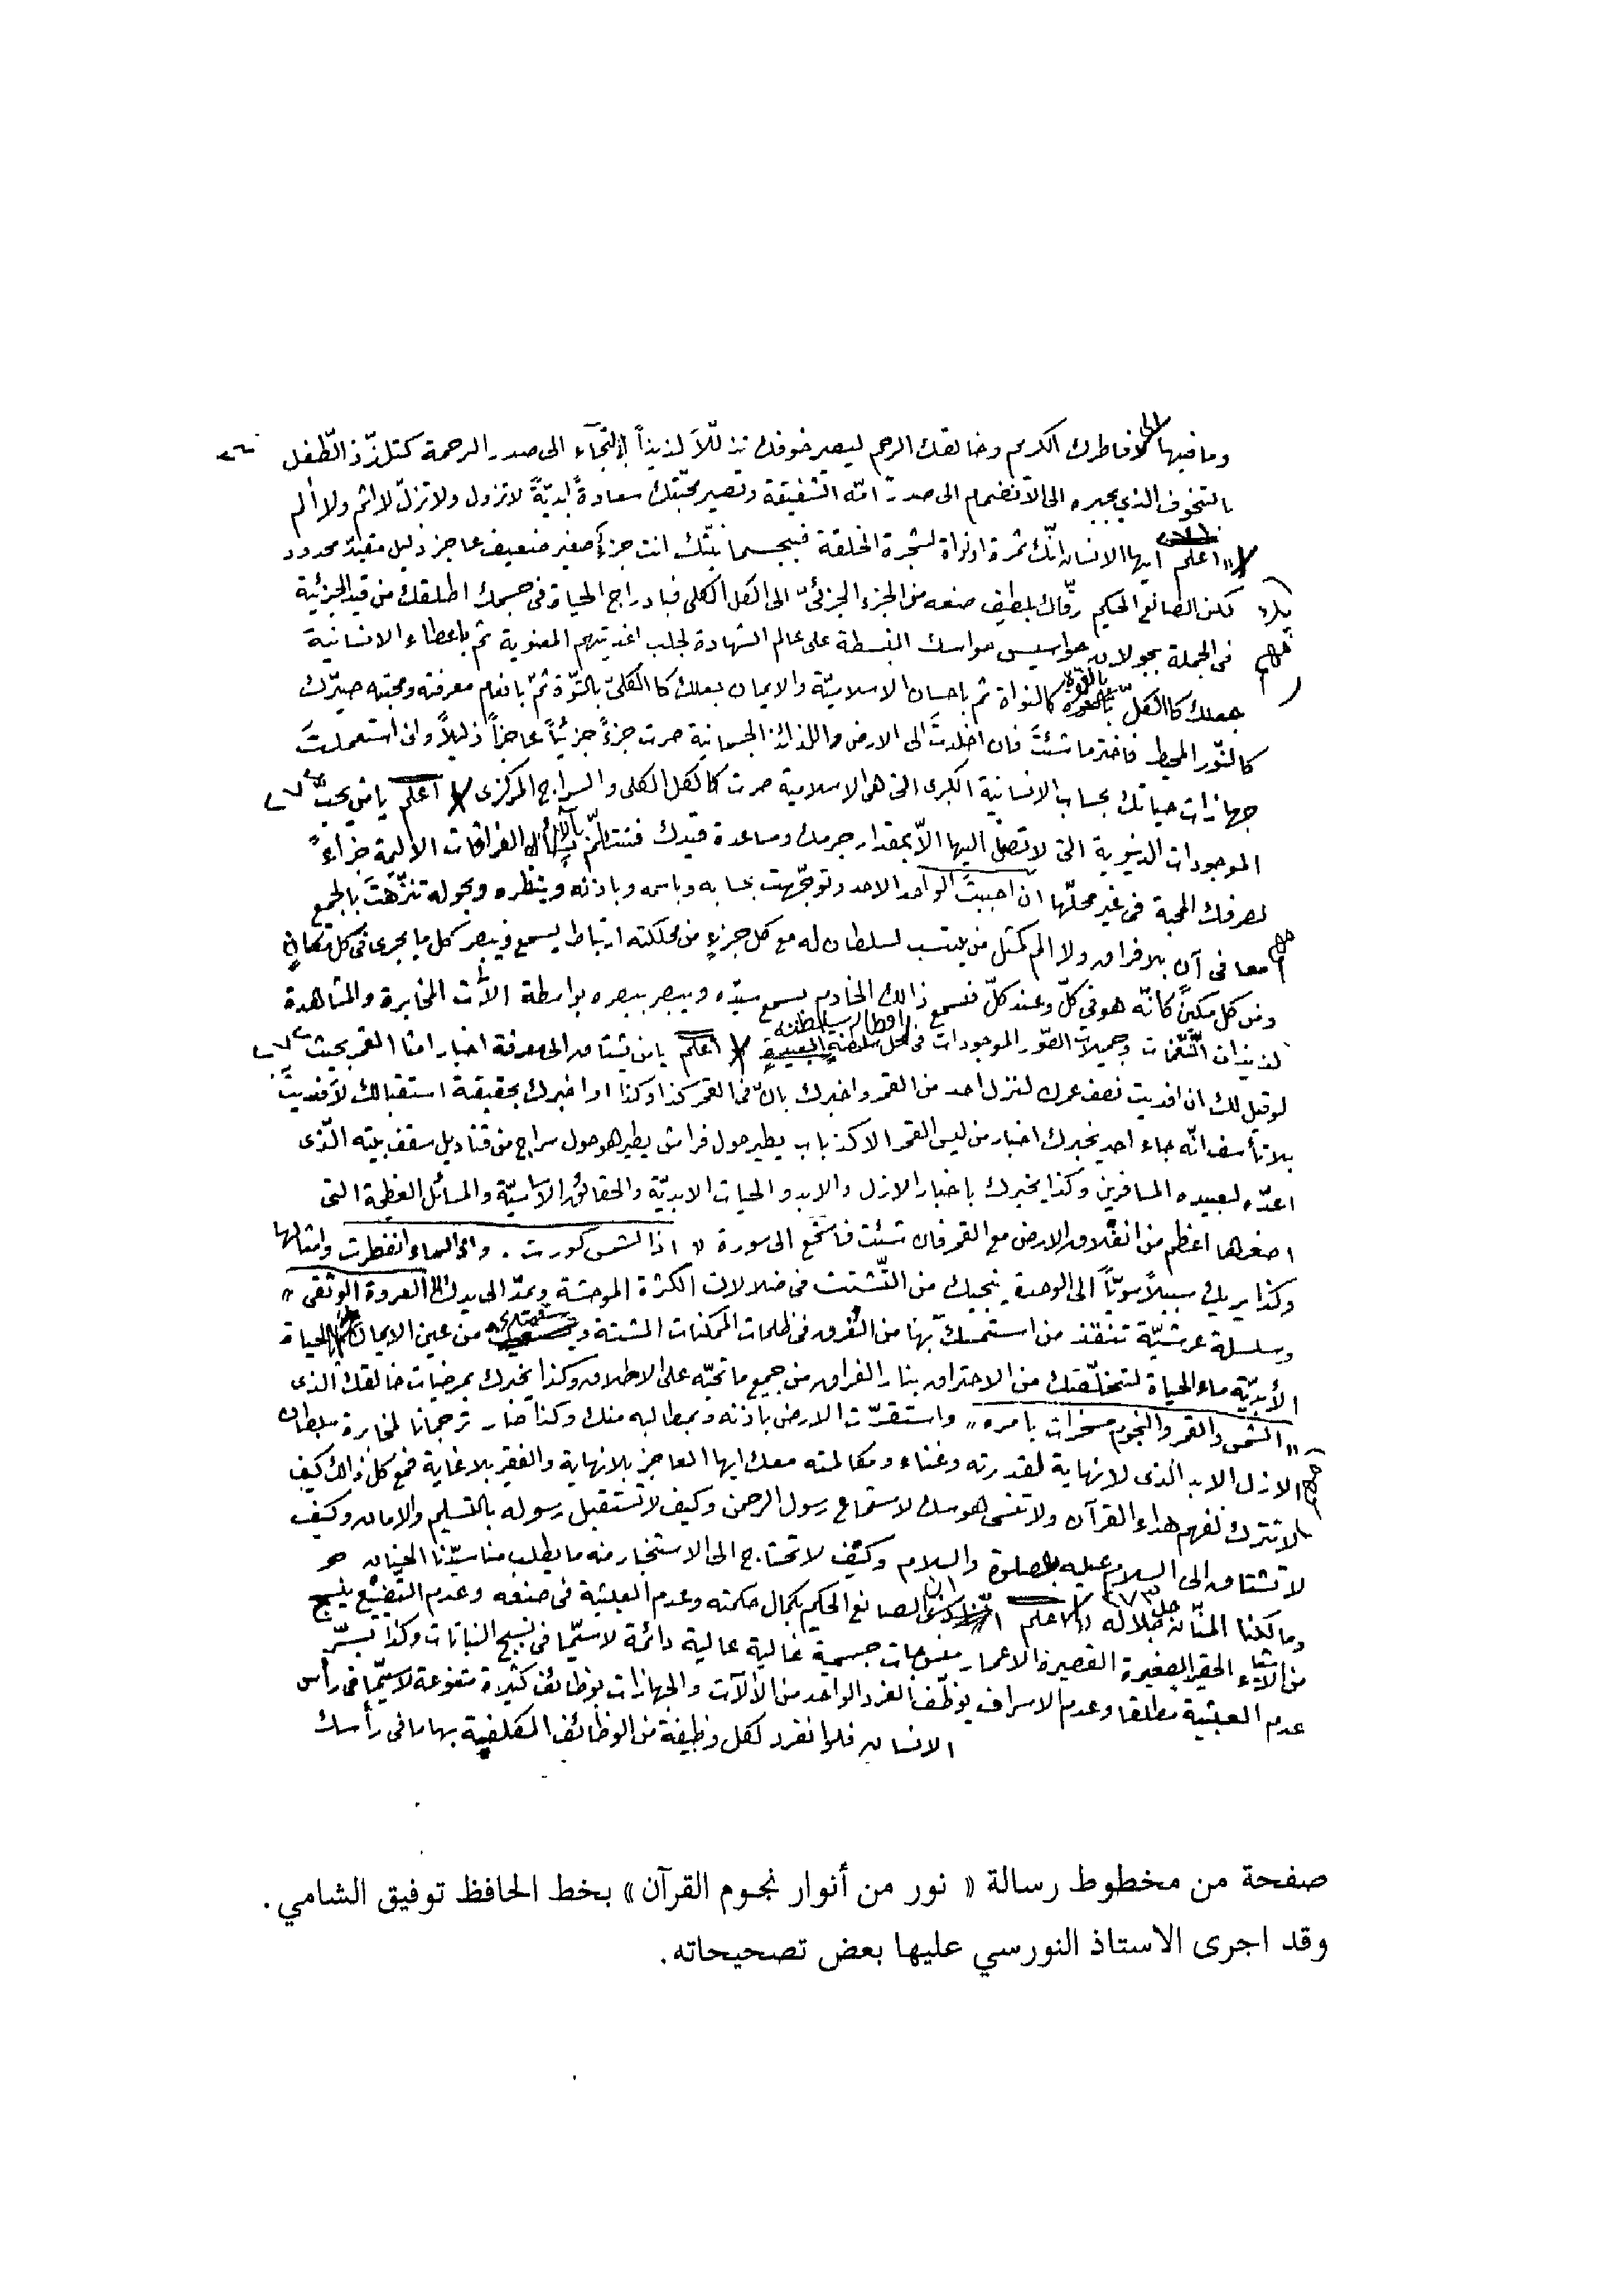 وما فيها الى فاطرك الكريم وخالقك الرحيم ليصير خوفك تذلّلاً لذيذاً بالتجاء الى صدر الرحمة كتلذّذ الطّفل
بالتخوف الذي يجبره الى الانضمام الى صدر امّه الشفيقة وتصير محبّتك سعادةً ابديّةً لا تزول ولا تزلّ لا اثم ولا ألم
اعلم ايها الانسان انّك ثمرة او نواة لشجرة الخلقة فبجسمانيّتك انت جزءٌ صغير ضعيف عاجز ذليل مقيّد محدود
لكن الصانع الحكيم رقّاك بلطيف صنعه من الجزء الجزئىّ الى الكل الكلى فبادراج الحياة فى جسمك اطلقك من قيد الجزئية
فى الجملة بجولان جواسيس حواسك المنبسطة على عالم الشهادة لجلب اغذيتهم المعنوية ثم باعطاء الانسانية
جعلك كالكلّ بالقوة كالنواة ثم باحسان الاسلاميّة والايمان جعلك كالكلىّ بالقوّة ثمّ بانعام معرفته ومحبته صيّرك
كالنّور المحيط فاختر ما شئتَ فان اخلدتَ الى الارض واللذائذ الجسمانية صرت جزءً جزئياً عاجزاً ذليلاً وان استعملتَ
جهازات حياتك بحساب الانسانية الكبرى التى هى الاسلامية صرت كالكل الكلى والسراج المركزى اعلم يا من يحبّ
الموجودات الدنيوية التى لا تصل اليها الاّ بمقدار جرمك ومساعدة قيدك فتتألّم بآلام الفراقات الاليمة جزاءً
لصرفك المحبة فى غير محلّها ان احببتَ الواحد الاحد وتوجّهت بحسابه وباسمه وباذنه وبنظره وبحوله تنزّهتَ بالجميع
معا فى آن بلا فراق ولا الم كمثل من ينتسب لسلطان له مع كل جزءٍ من مملكته ارتباط يسمع ويبصر كل ما يجرى فى كل مكانٍ
ومن كل مكينٍ كانّه هو فى كلّ وعند كلّ فسمع ذالك الخادم بسمع سيّده ويبصر ببصره بواسطة الآت المخابرة والمشاهدة
لذيذات النّغمات وجميلات الصّور الموجودات فى اقطار سلطنته اعلم يا من يشتاق الى معرفة اخبار امثال القمر بحيث
لو قيل لك ان افديت نصف عمرك لنزل احد من القمر واخبرك بانّ فى القمر كذا وكذا او اخبرك بحقيقة استقبالك لأفديتَ
بلا تأسف انّه جاء احد يخبرك اخبار من ليس القمر الا كذباب يطير حول فراش يطير هو حول سراج من قناديل سقف بيته الّذى
اعدّه لعبيده المسافرين وكذا يخبرك باخبار الازل والابد والحيات الابديّة والحقائق الاساسيّة والمسائل العظيمة التى
اصغرها اعظم من انفلاق الارض مع القمر فان شئت فاستمع الى سورة « اذا الشمس كورت . واذا السماء انفطرت وامثالها
وكذا يريك سبيلاً سويّاً الى الوحدة ينجيك من التّشتت فى ضلالات الكثرة الموحشة ويمدّ الى يدك العروة الوثقى »
وسلسلة عرشيّة تنقذ من استمسك بها من الغرق فى ظلمات الممكنات المشتتة ويسقيك من عين الايمان الحياة
الأبديّة ماء الحياة لتخلّصك من الاحتراق بنار الفراق من جميع ما تحبّه على الاطلاق وكذا يخبرك بمرضيات خالقك الذى
«الشمس والقمر والنجوم مسخرات بامره» واستقرّت الارض باذنه وبمطالبه منك وكذا صار ترجمانا لمخابرة سلطان
الازل الابد الذى لا نهاية لقدرته وغناء ومكالمته معك ايها العاجز بلا نهاية والفقير بلا غاية فمع كل ذالك كيف
لا تترك لفهم هداء القرآن ولا تنسى هوسك لاستماع رسول الرحمن وكيف لا تستقبل رسوله بالتسليم والامان وكيف
لا تشتاق الى السلام عليه بصلوة والسلام وكيف لا تحتاج الى الاستخبار منه ما يطلب منا سيّدنا الحنان
ومالكنا المنّان جلّ جلاله اعلم ان الصانع الحكيم بكمال حكمته وعدم العبثية فى صنعه وعدم التّضييع ينسج
من الاشياء الحقير الصغيرة القصيرة الاعمار منسوجات جسيمة غالية عالية دائمة لا سيّما فى نسج النباتات وكذا بسرّ
عدم العبثية مطلقا وعدم الاسراف يوظّف الفرد الواحد من الآلات والجهازات بوظائف كثيرة متنوعة لا سيّما فى رأس
الانسان فلو انفرد لكل وظيفة من الوظائف المكلفية بها ما فى رأسك
صفحة من مخطوط رسالة « نور من أنوار نجوم القرآن » بخط الحافظ توفيق الشامي .
وقد اجرى الاستاذ النورسي عليها بعض تصحيحاته.